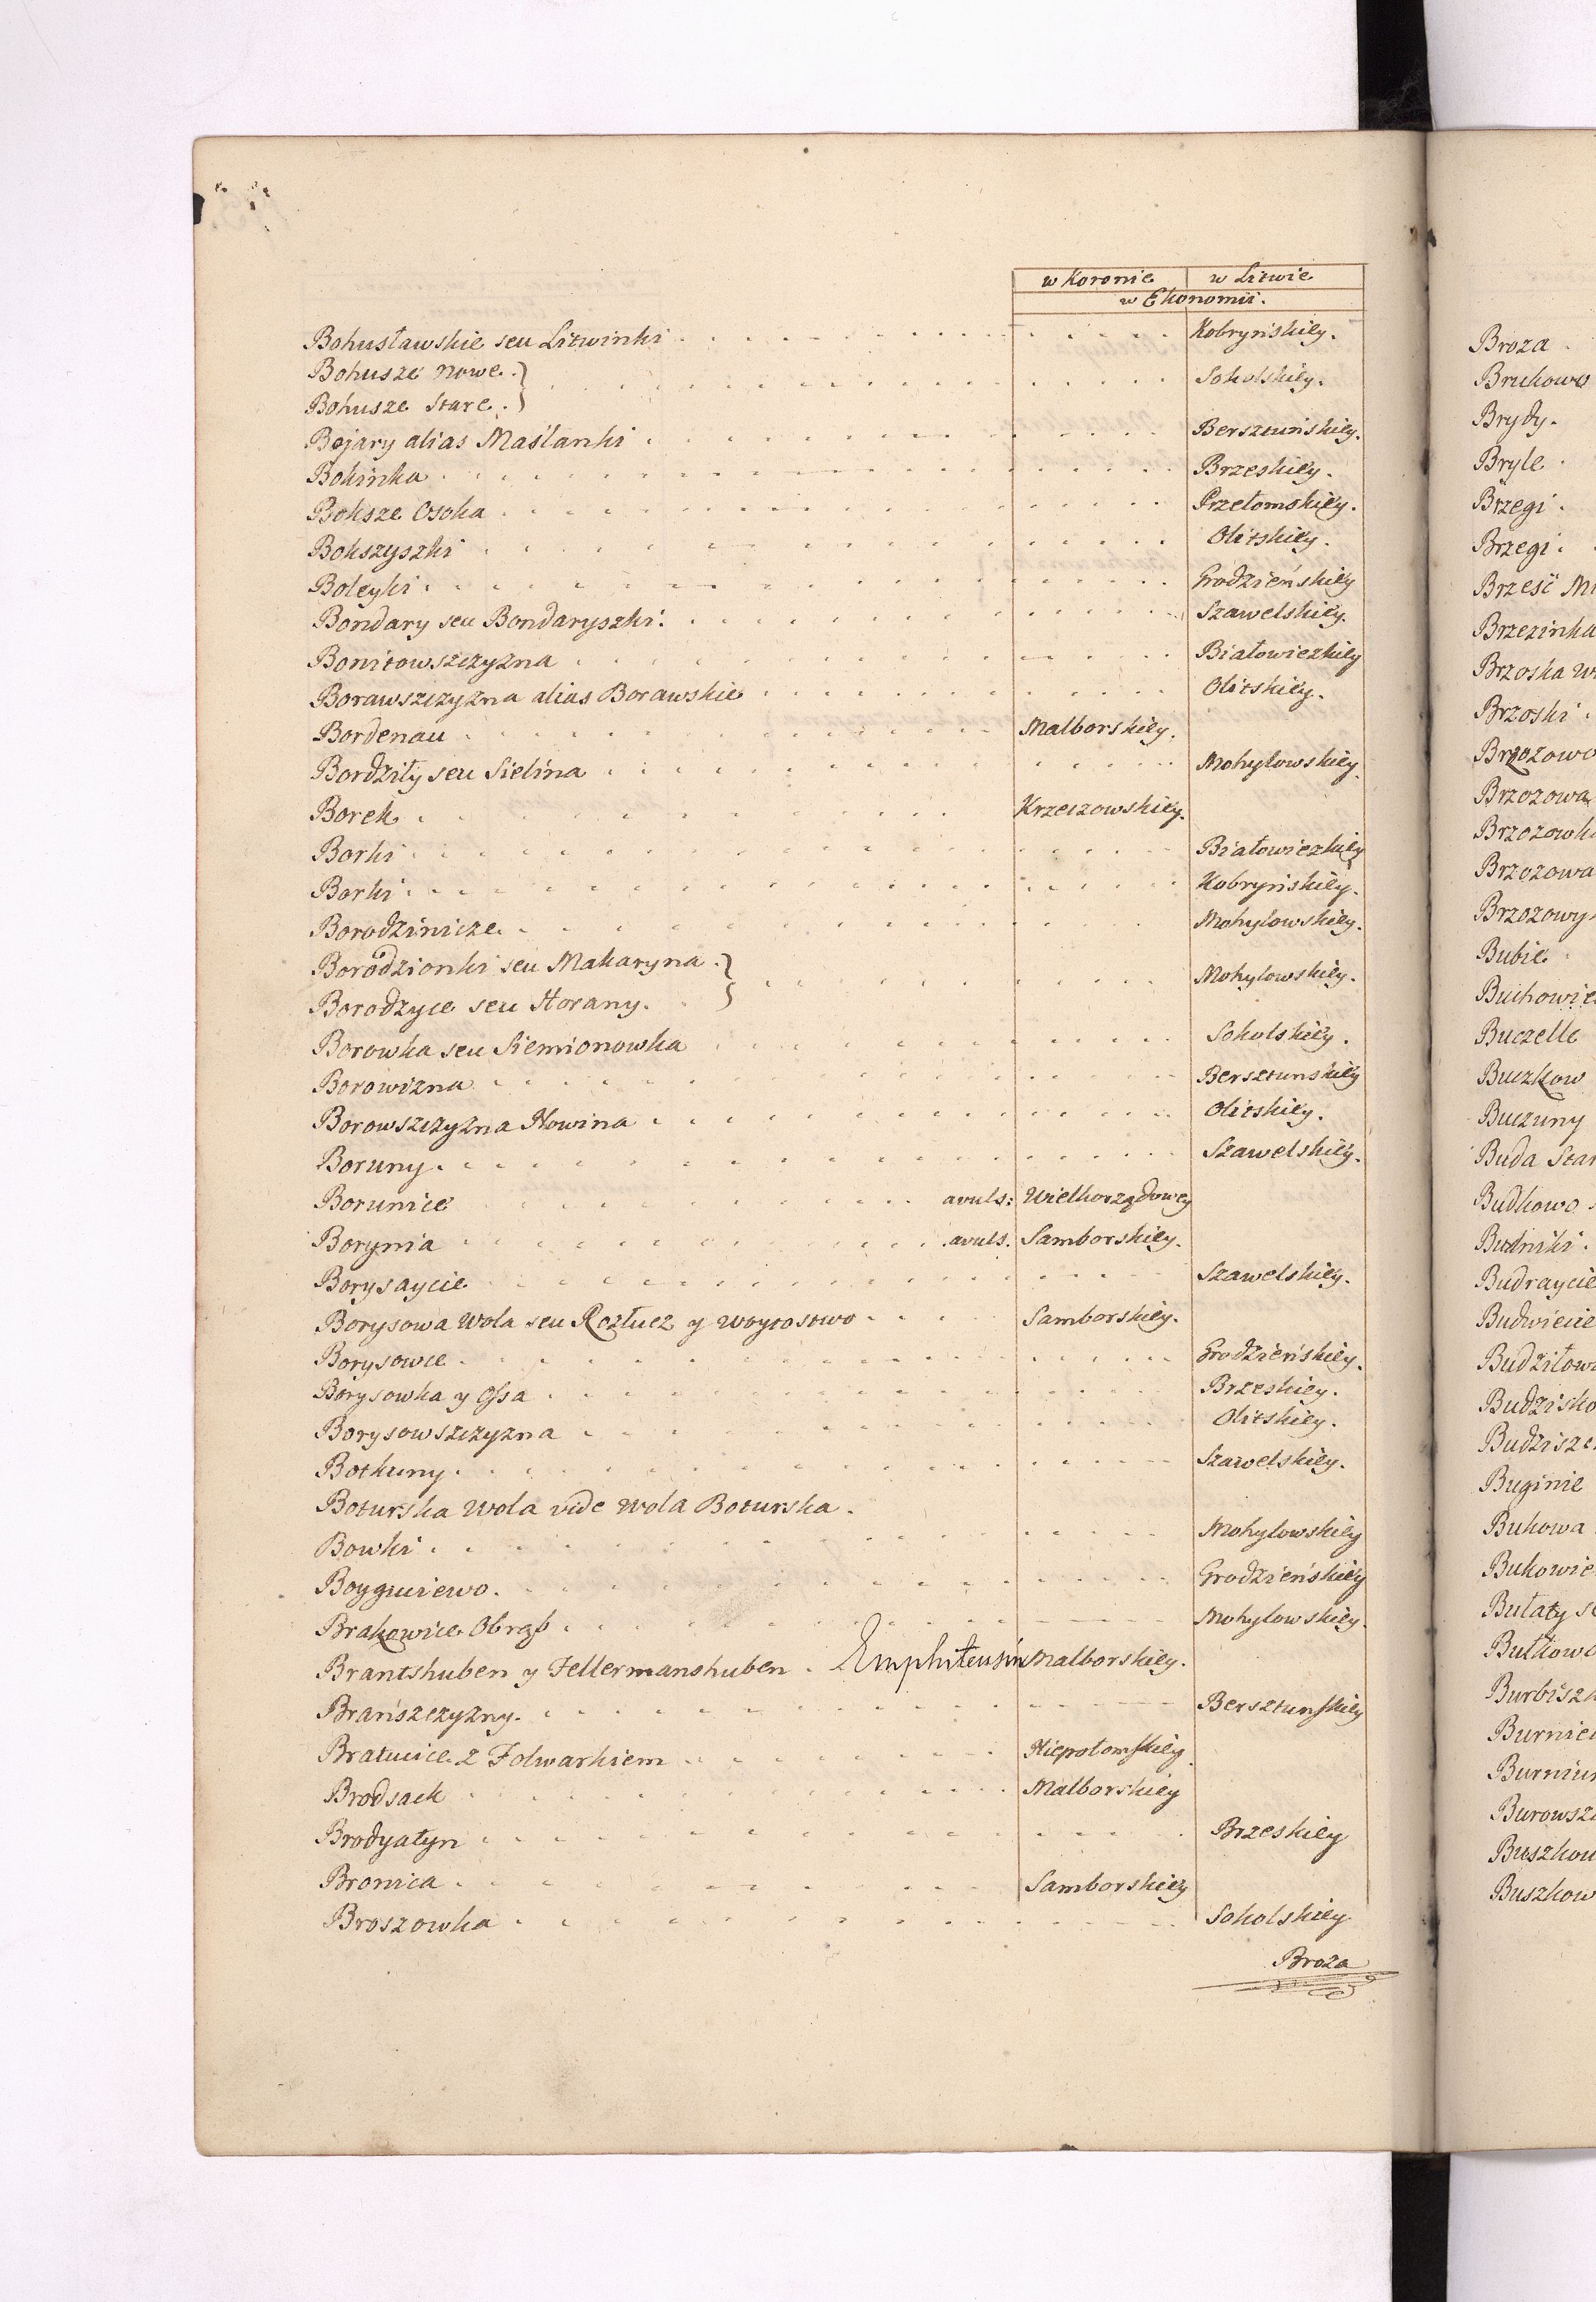 w Koronie w Litwie
w Ekonomii.
Bohusławskie seu Litwinki Kobryńskiey.
Bohusze Nowe. Sokolskiey.
Bohusze Stare.
Bojary alias Maślanki Bersztuńskiey.
Bokinka Brzeskiey.
Boksze Osoka Przełomskiey.
Bokszyszki Olitskiey.
Boleyki Grodzieńskiey
Bondary seu Bondaryszki. Szawelskiey.
Bonitowszczyzna Białowiezkiey
Borawszczyzna alias Borawskie Olitskiey.
Bordenau Malborskiey.
Bordziły seu Sielina Mohylowskiey.
Borek Krzeczowskiey.
Borki Białowiezkiey
Borki Kobryńskiey.
Borodzinicze Mohylowskiey.
Borodzionki seu Makaryna Mohylowskiey.
Borodzyce seu Horany.
Borowka seu Siemionowka Sokolskiey.
Borowizna Bersztunskiey
Borowszczyzna Nowina Olitskiey.
Boruny. Szawelskiey.
Borunice avuls: Wielkorządowey
Borynia avuls. Samborskiey.
Borysaycie Szawelskiey.
Borysowa Wola seu Rozłucz y Woytostwo Samborskiey.
Borysowce Grodzieńskiey.
Borysowka y Ossa Brzeskiey.
Borysowszczyzna Olitskiey.
Botkuny. Szawelskiey.
Boturska Wola vide Wola Boturska.
Bowki Mohylowskiey
Boygusiewo. Grodzieńskiey
Brakowice Obrąb Mohylowskiey.
Brantshuben y Fellermanshuben. Emphiteusin Malborskiey.
Brańszczyzny. Bersztunskiey
Bratucice z Folwarkiem Niepołomskiey.
Brodsack Malborskiey
Brodyatyn Brzeskiey
Bronica Samborskiey
Broszowka Sokolskiey
Broza
Broza
Brukowo
Brydy.
Bryle
Brzegi.
Brzegi.
Brześć
Brzezinka
Brzoska
Brzoski
Brzozowa
Brzozowa
Bubie
Buczelle
Buczkow
Buczuny
Buda
Budkowo
Budniki.
Budraycie
Budwiecie
Buginie
Bukowa
Bułaty